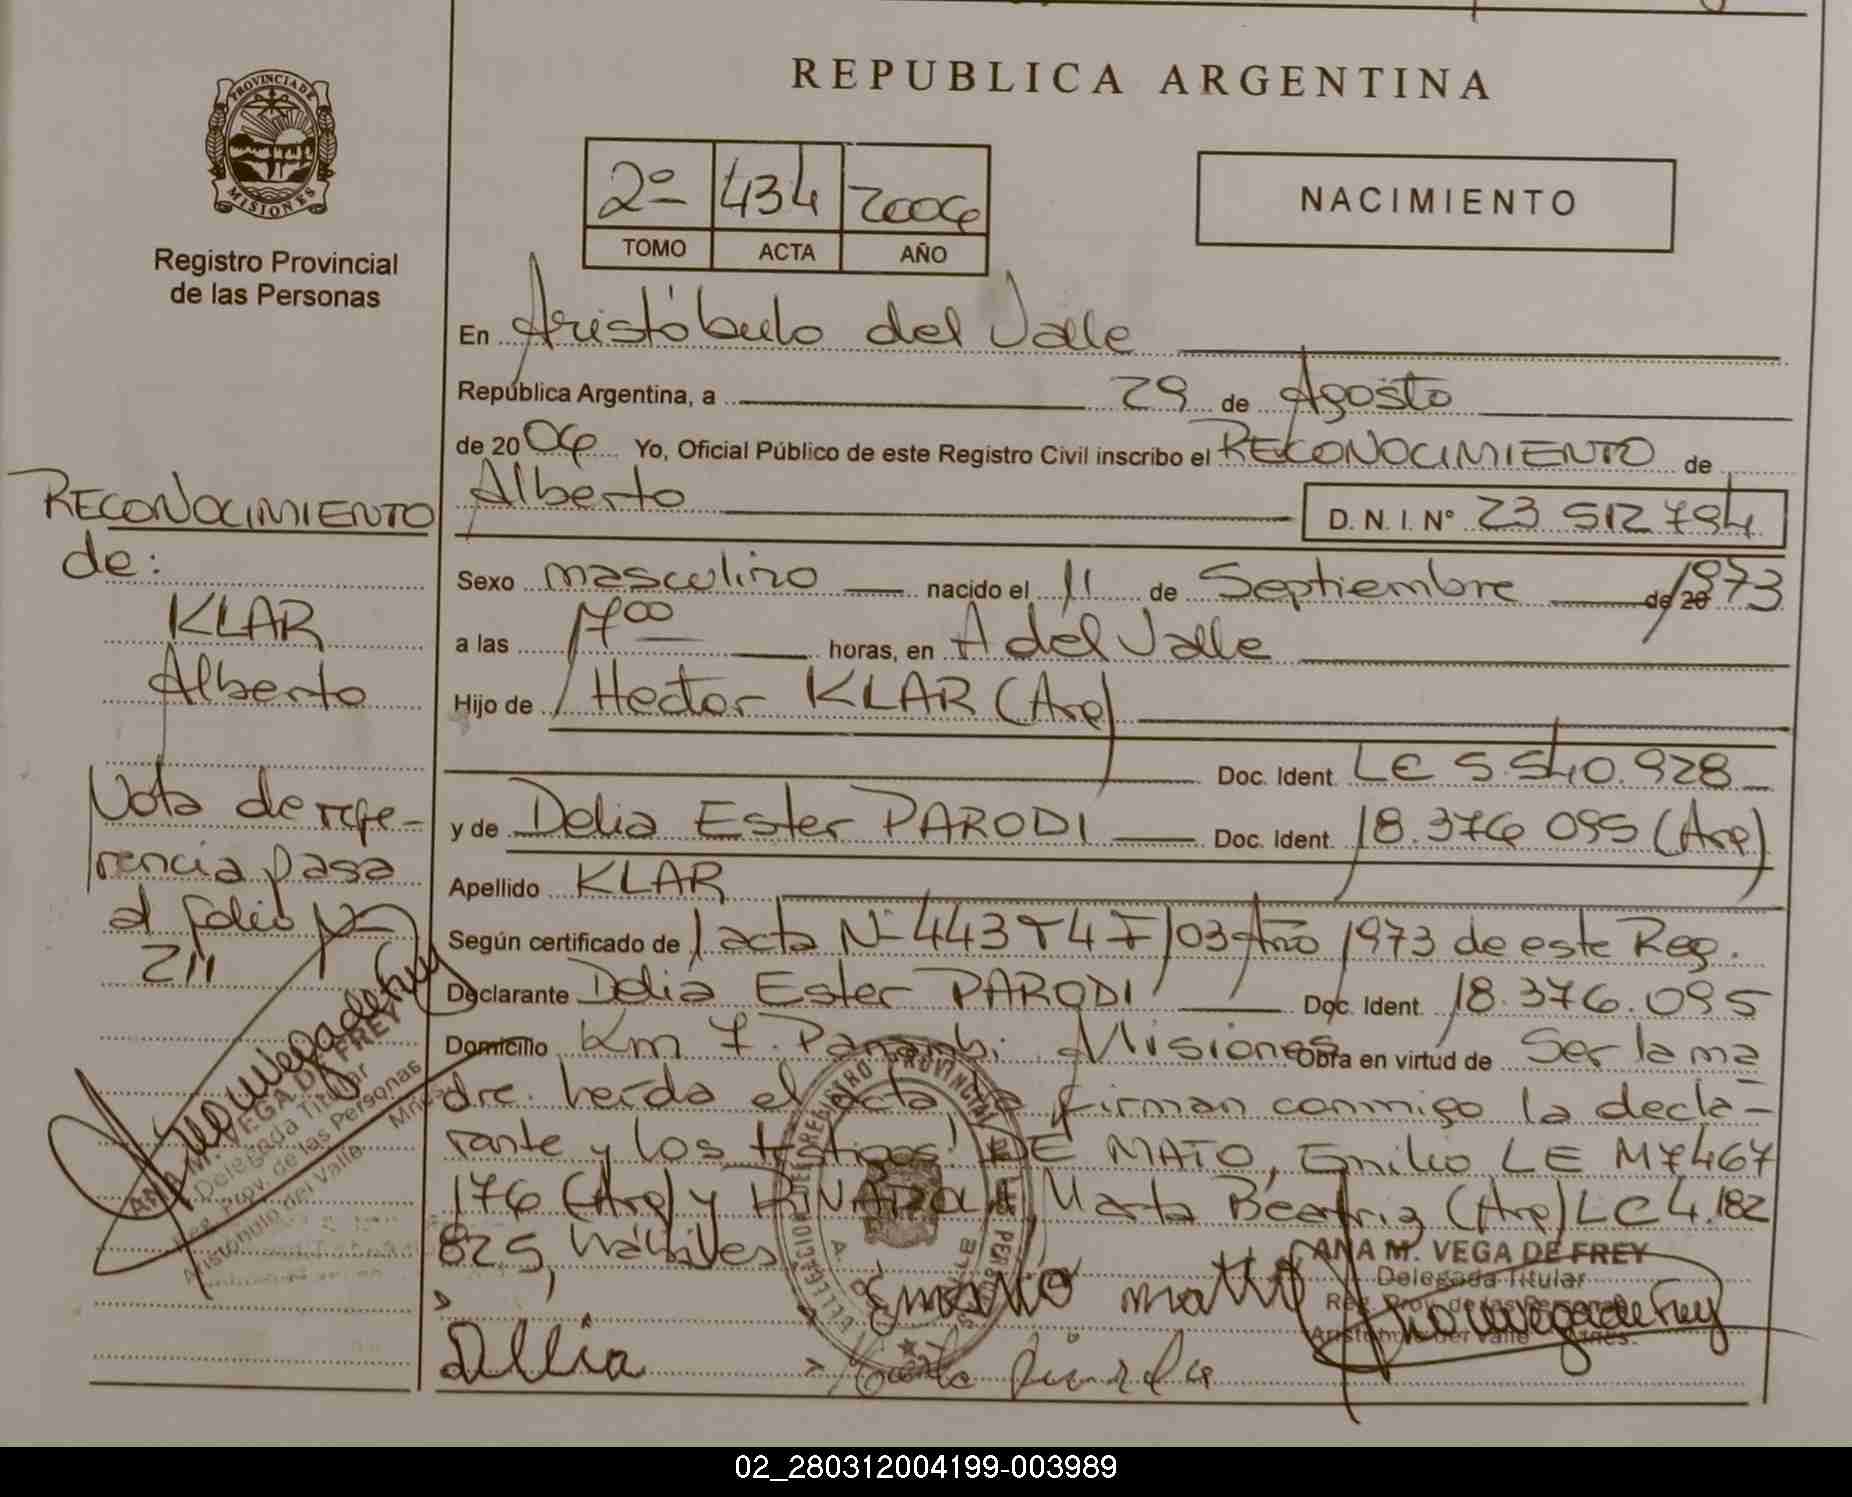 PROVINCIA DE
MISIONES
Registro Provincial
de las Personas
REPUBLICA ARGENTINA
2º 434 2006
TOMO ACTA AÑO
NACIMIENTO
En Aristóbulo del Valle
República Argentina, a 29 de Agosto
de 20 06 Yo, Oficial Público de este Registro Civil inscribo el RECONOCIMIENTO de
Alberto D. N. I. Nº 23 512 794
Sexo masculino nacido el 11 de Septiembre de 20 1973
a las 17 00 horas, en A del Valle
Hijo de Hector KLAR (Arg)
Doc. Ident. LE 5.540.928
y de Delia Ester PARODI Doc. Ident. 18.376 095 (Arg)
Apellido KLAR
Según certificado de acta Nº 443 T4 F/03 Año 1973 de este Reg.
Declarante Delia Ester PARODI Doc. Ident. 18.376.095
Domicilio Km 7. Panambi Misiones Obra en virtud de Ser la ma
dre. leída el acta, la firman conmigo la decla-
rante y los testigos: DE MATO, Emilio LE M7467
176 (Arg) y RIVAROLA, Marta Beatriz (Arg) LC 4.182
825, hábiles
RECONOCIMIENTO
de:
KLAR
Alberto
Nota de refe-
rencia pasa
al folio Nº
211
ANA M. VEGA DE FREY
Delegada Titular
Reg. Prov. de las Personas
Aristóbulo del Valle Mnes.
ANA M. VEGA DE FREY
Delegada Titular
Reg. Prov. de las Personas
Aristóbulo del Valle Mnes.
REGISTRO PROVINCIAL DE LAS PERSONAS
Delia
02_280312004199-003989